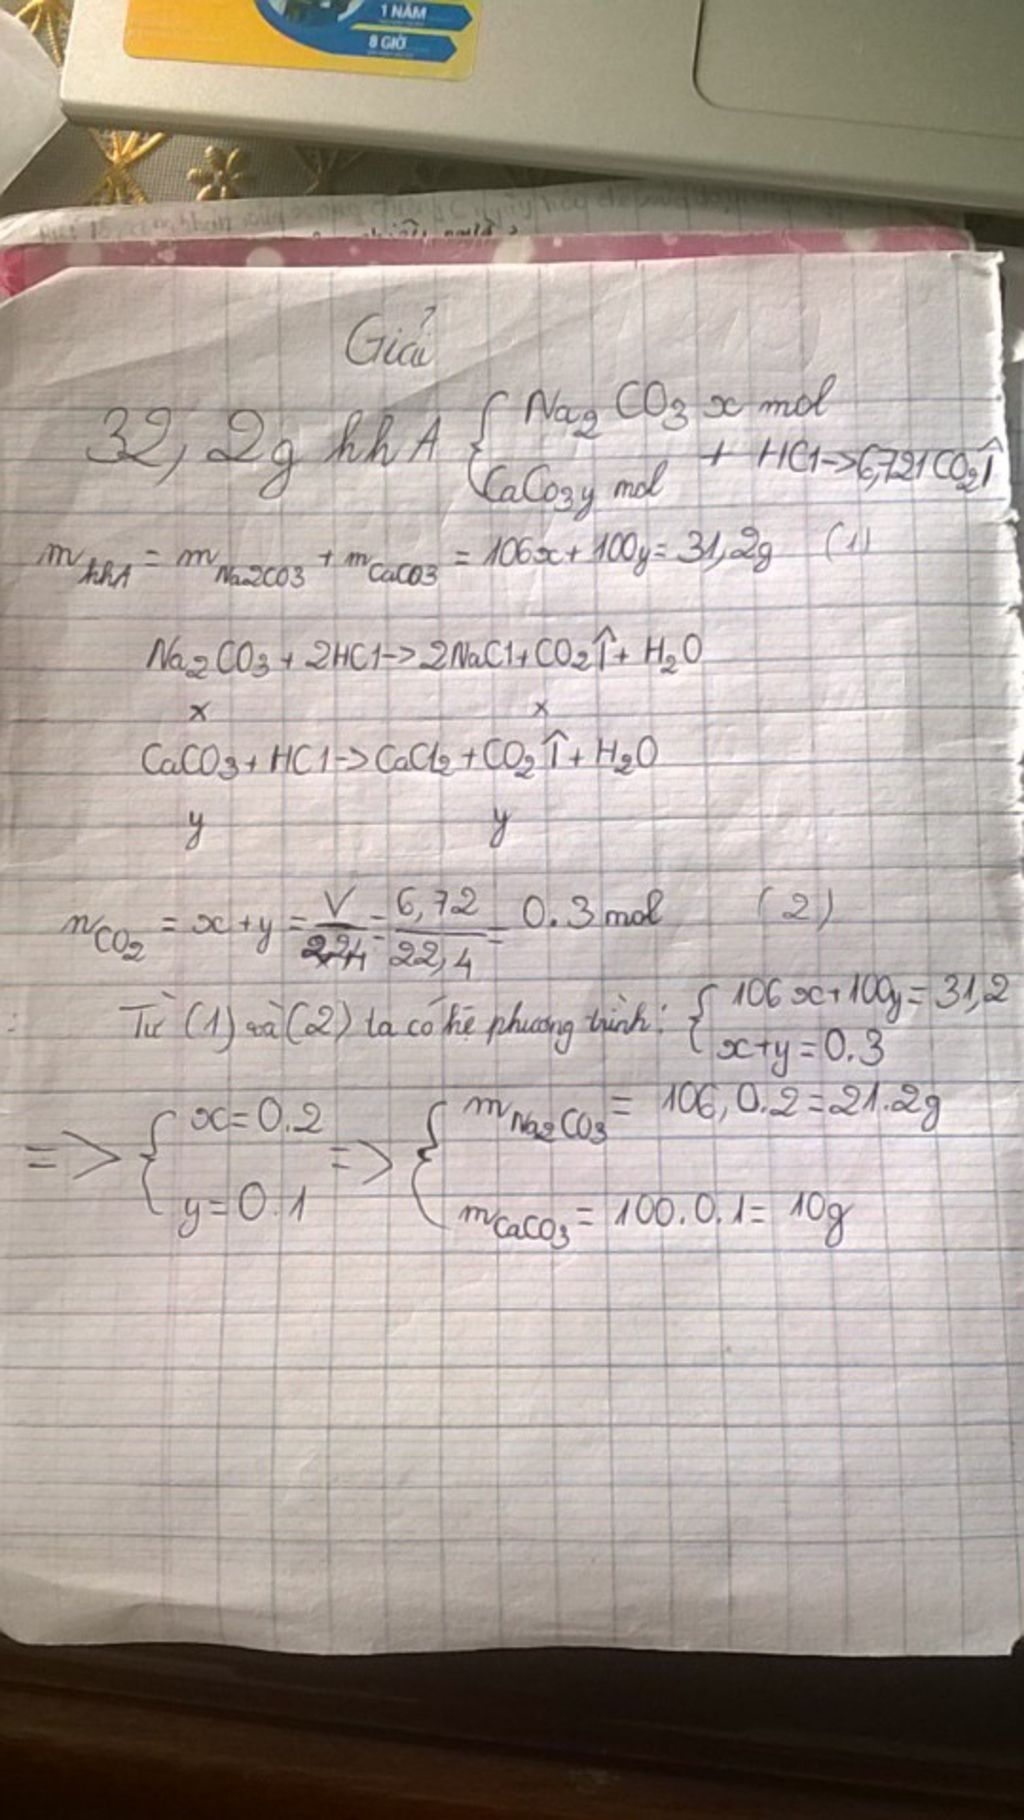 1 NĂM
8 GIỜ
Giải
32,2g hhA { Na2CO3 x mol
CaCO3 y mol + HCl -> 6,72l CO2↑
m hhA = m Na2CO3 + m CaCO3 = 106x + 100y = 31,2g (1)
Na2CO3 + 2HCl -> 2NaCl + CO2↑ + H2O
x x
CaCO3 + HCl -> CaCl2 + CO2↑ + H2O
y y
nCO2 = x + y = V/22,4 = 6,72/22,4 = 0.3 mol (2)
Từ (1) và (2) ta có hệ phương trình: { 106x + 100y = 31,2
x + y = 0.3
=> { x = 0.2 => { m Na2CO3 = 106, 0.2 = 21.2g
y = 0.1 m CaCO3 = 100.0.1 = 10g